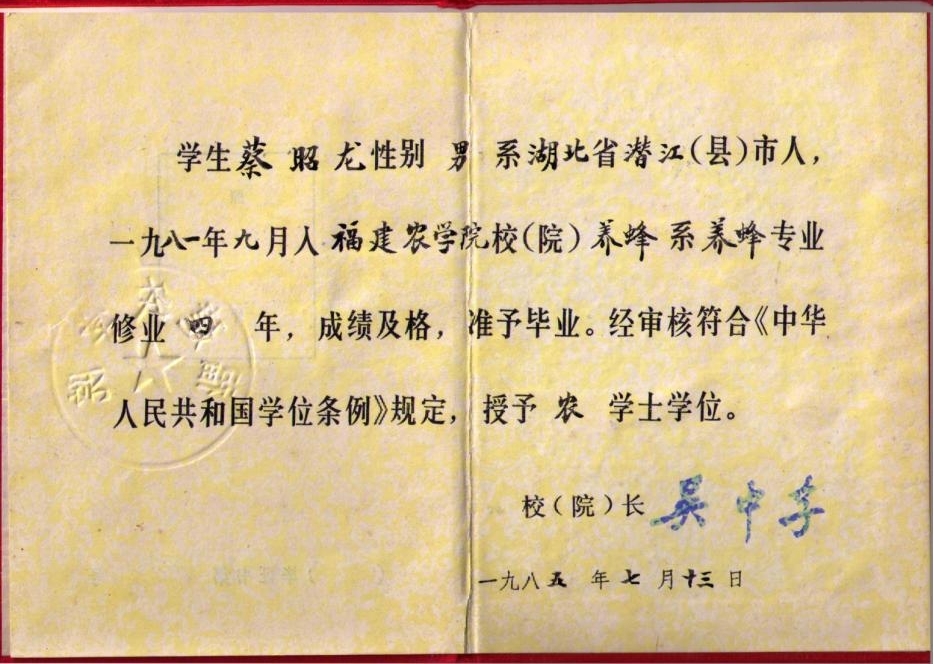 学生蔡昭龙性别 男 系湖北省潜江(县)市人,
一九八一年九月入福建农学院校(院)养蜂系养蜂专业
修业 四 年,成绩及格,准予毕业。经审核符合《中华
人民共和国学位条例》规定,授予 农 学士学位。
校(院)长 吴中孚
一九八五年七月十三日